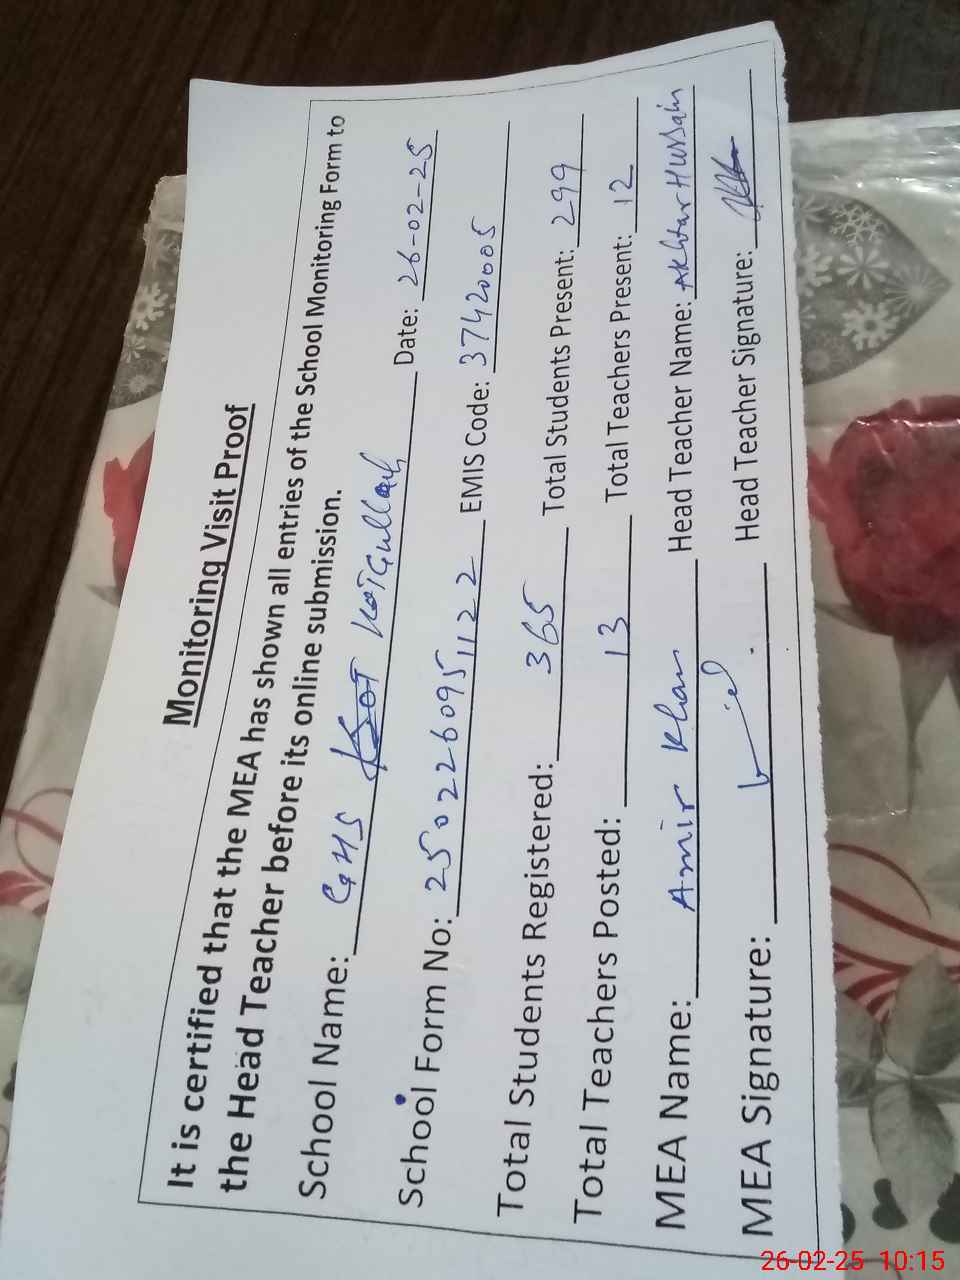 Monitoring Visit Proof
It is certified that the MEA has shown all entries of the School Monitoring Form to
the Head Teacher before its online submission.
School Name: GHS Kot Kotgullah Date: 26-02-25
School Form No: 2502260951122 EMIS Code: 37420005
Total Students Registered: 365 Total Students Present: 299
Total Teachers Posted: 13 Total Teachers Present: 12
MEA Name: Amir Khan Head Teacher Name: Akhtar Hussain
MEA Signature: Head Teacher Signature:
26-02-25 10:15